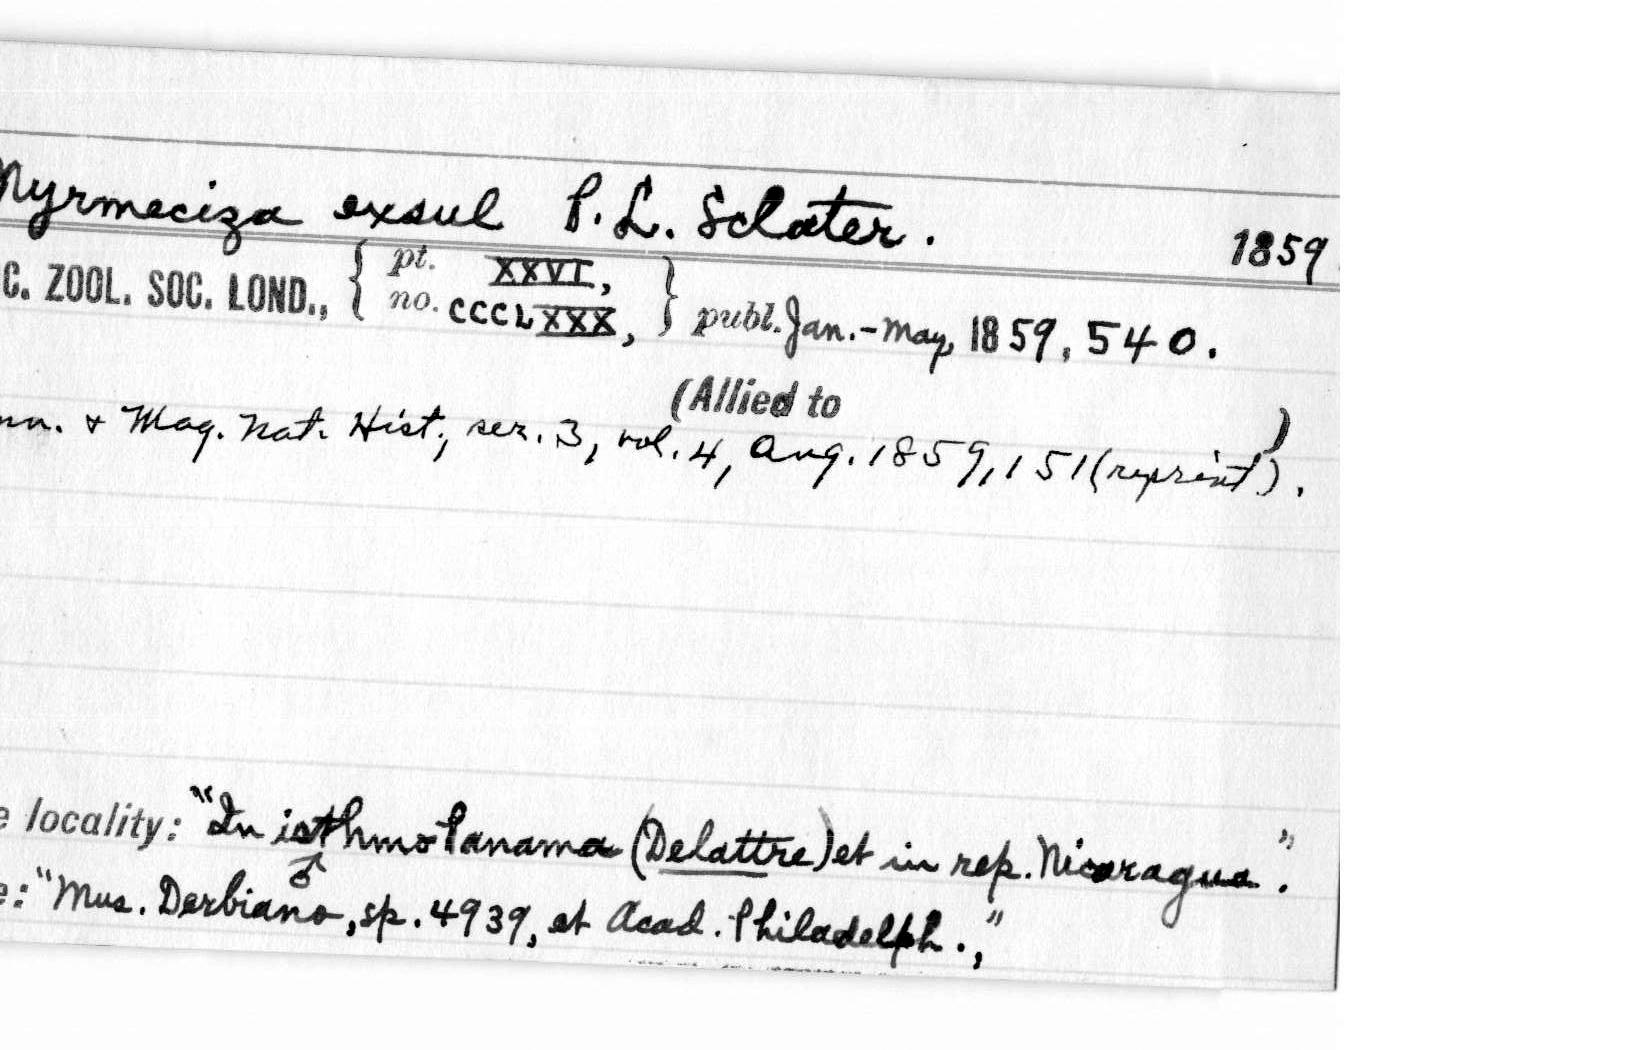 Myrmeciza exsul P. L. Sclater. 1859
C. ZOOL. SOC. LOND., { pt. XXVI, no. CCCLXXX, } publ. Jan.-May, 1859, 540.
(Allied to )
nn. & Mag. Nat. Hist., ser. 3, vol. 4, Aug. 1859, 151 (reprint).
e locality: "In isthmo Panama (Delattre) et in rep. Nicaragua."
e: "Mus. Derbiano, ♂ sp. 4939, et Acad. Philadelph.,"